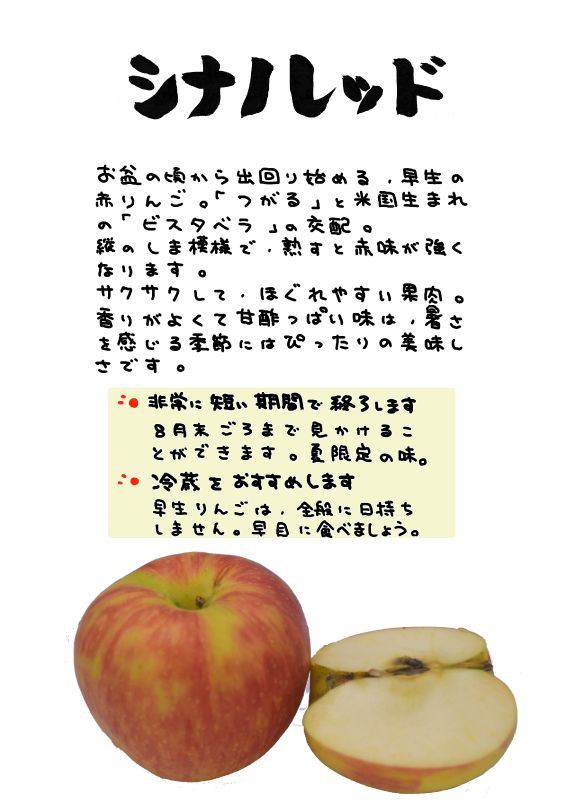 シナノレッド
お盆の頃から出回り始める、早生の
赤りんご。「つがる」と米国生まれ
の「ビスタベラ」の交配。
縦のしま模様で、熟すと赤味が強く
なります。
サクサクして、ほぐれやすい果肉。
香りがよくて甘酸っぱい味は、暑さ
を感じる季節にはぴったりの美味し
さです。
非常に短い期間で終了します
8月末ごろまで見かけるこ
とができます。夏限定の味。
冷蔵をおすすめします
早生りんごは、全般に日持ち
しません。早目に食べましょう。